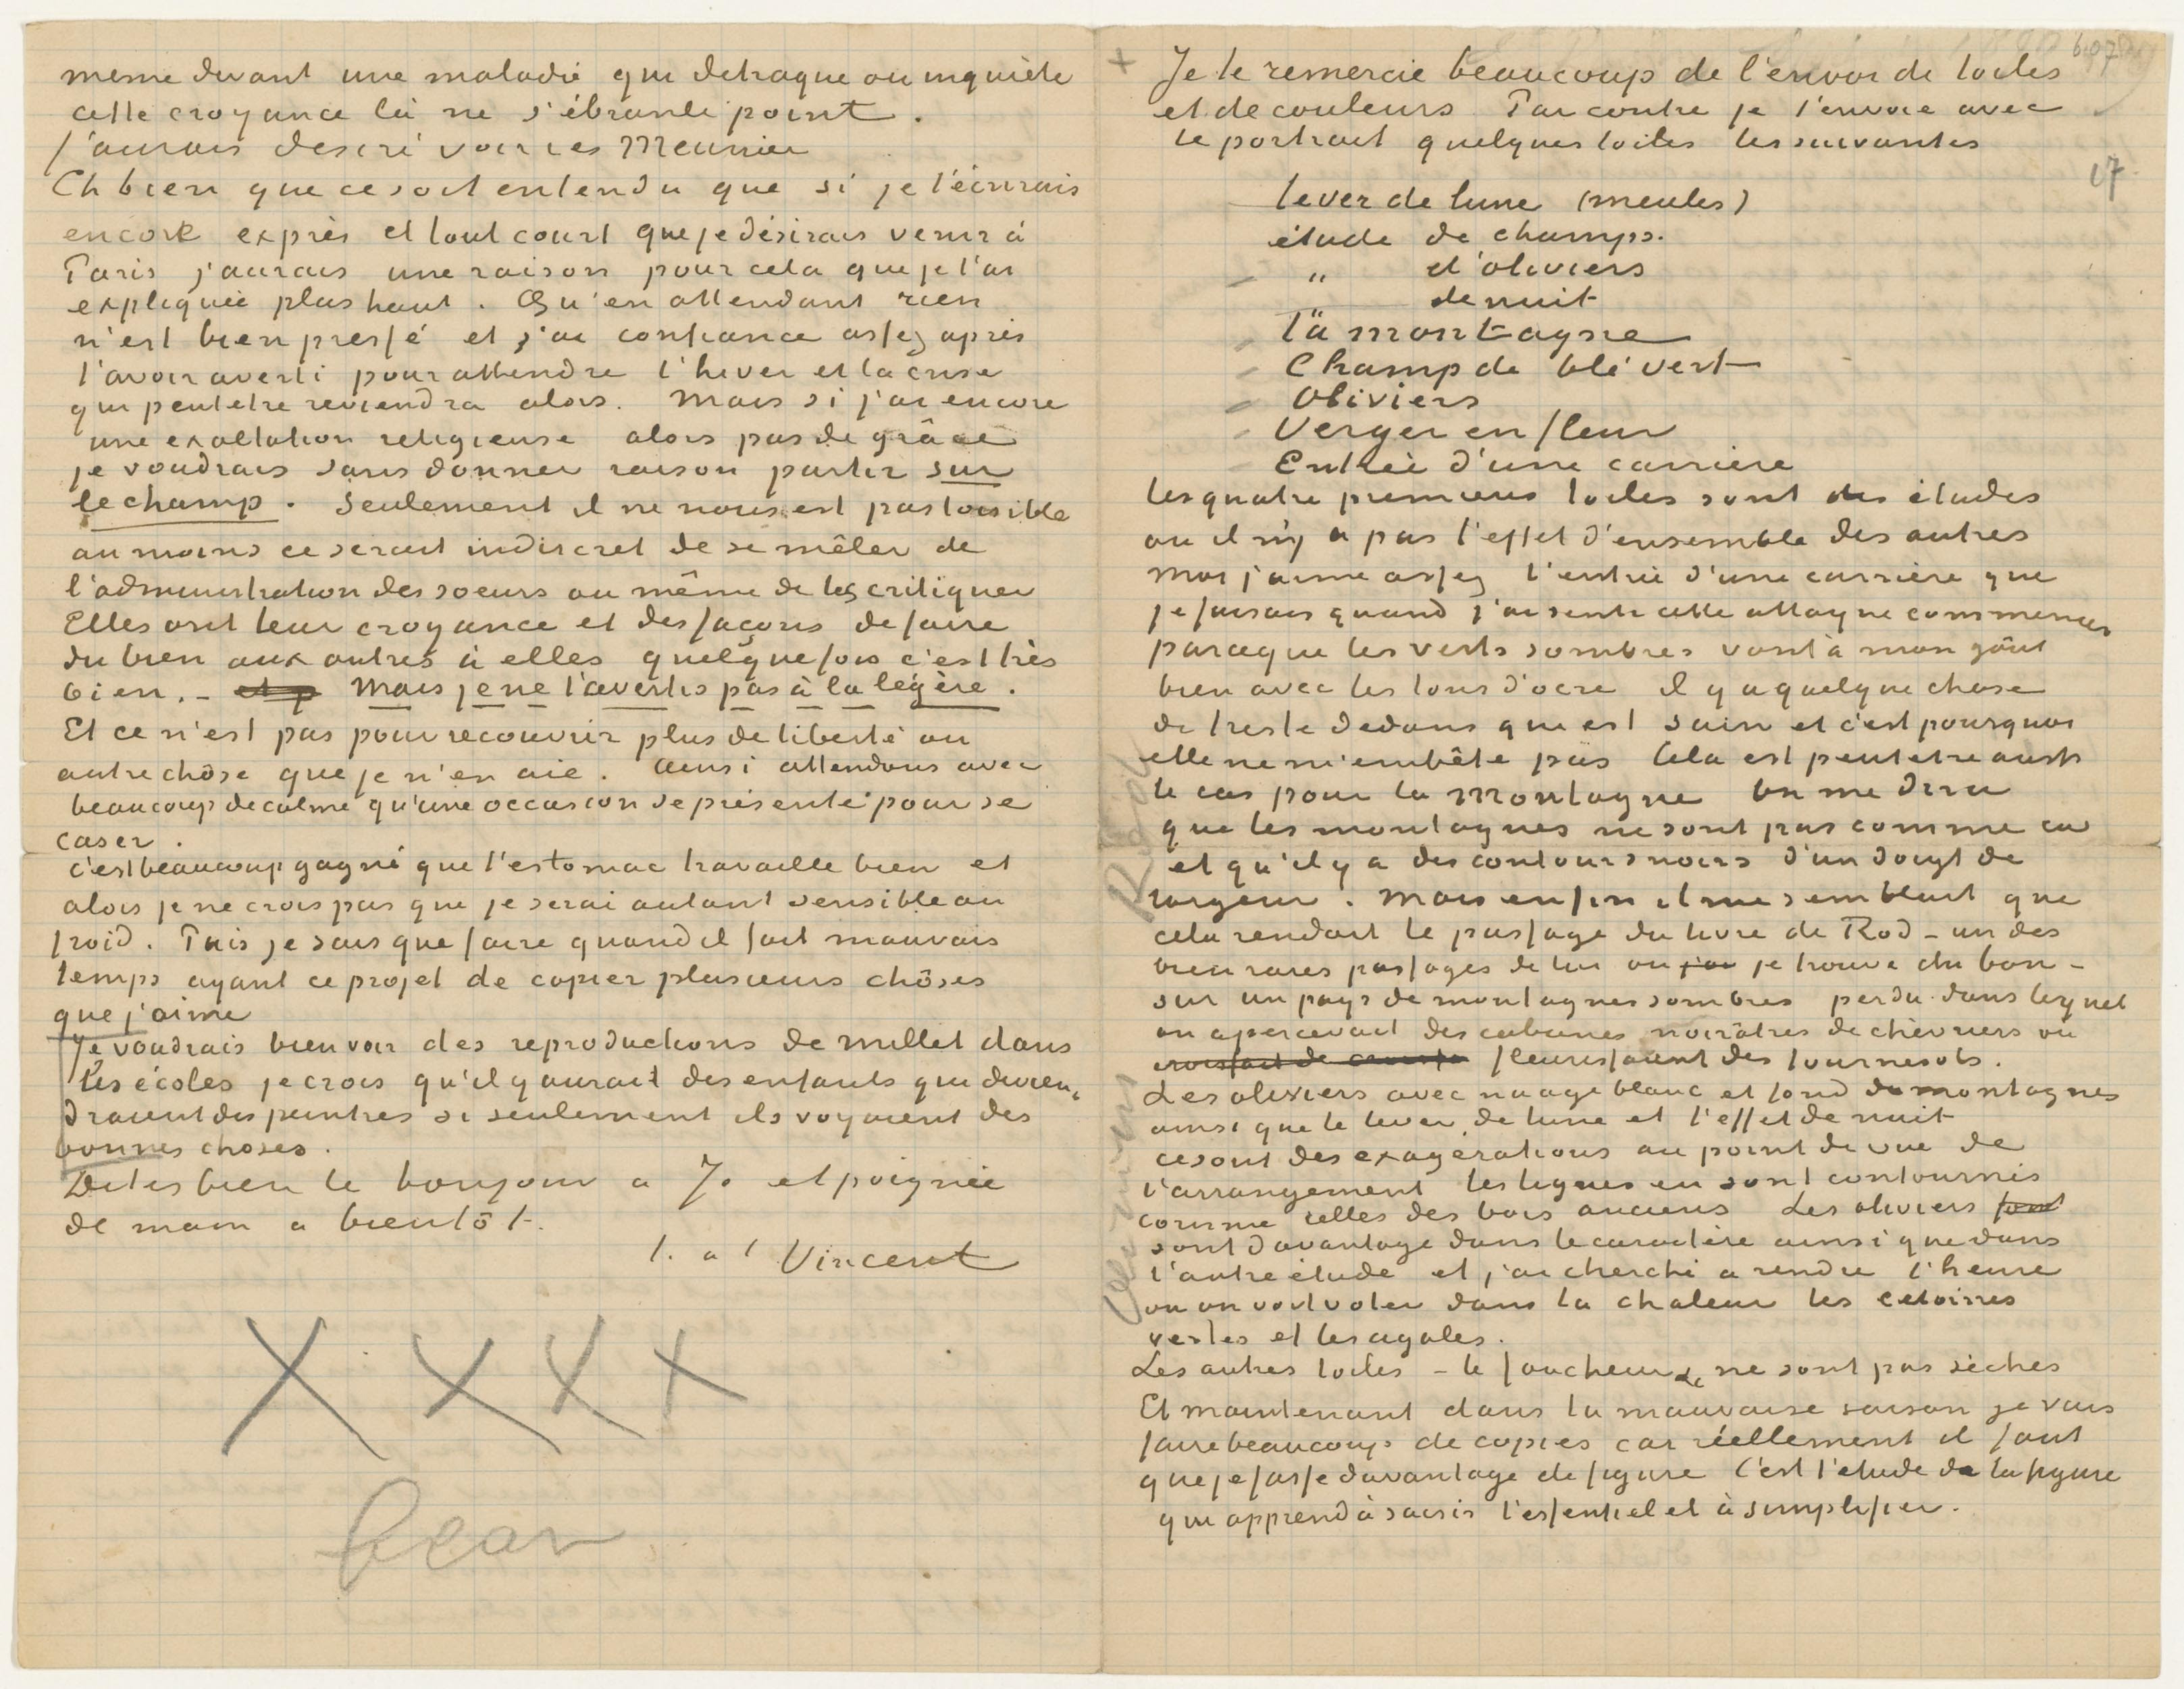 meme devant une maladie qui detraque ou inquiète
cette croyance là ne s'ébranle point.
J'aurais desiré voir les Meunier
Eh bien que ce soit entendu que si je t'écrirais
encore exprès et tout court que je désirais venir à
Paris j'aurais une raison pour cela que je t'ai
expliquée plus haut. Qu'en attendant rien
n'est bien pressé et j'ai confiance assez après
t'avoir averti pour attendre l'hiver et la crise
qui peutetre reviendra alors. Mais si j'ai encore
une exaltation religieuse alors pas de grâce
je voudrais sans donner raison partir sur
le champ. Seulement il ne nous est pas loisible
au moins ce serait indiscret de se mêler de
l'administration des soeurs ou même de les critiquer
Elles ont leur croyance et des façons de faire
du bien aux autres à elles quelquefois c'est très
bien. – et p Mais je ne t'avertis pas à la legère.
Et ce n'est pas pour recouvrir plus de liberté ou
autre chôse que je n'en aie. Ainsi attendons avec
beaucoup de calme qu'une occasion se présente pour se
caser.
C'est beaucoup gagné que l'estomac travaille bien et
alors je ne crois pas que je serai autant sensible au
froid. Puis je sais que faire quand il fait mauvais
temps ayant ce projet de copier plusieurs chôses
que j'aime
Je voudrais bien voir des reproductions de Millet dans
les écoles je crois qu'il y aurait des enfants qui devien,
draient des peintres si seulement ils voyaient des
bonnes choses.
Dites bien le bonjour a Jo et poignée
de main a bientôt.
t. a t Vincent
X X X X
+ Je te remercie beaucoup de l'envoi de toiles
et de couleurs Par contre je t'envoie avec
le portrait quelques toiles les suivantes
17
Lever de lune (meules)
étude de champs.
" d'oliviers
" de nuit
La montagne
Champ de blé vert
Oliviers
Verger en fleur
Entrée d'une carrière
les quatre premieres toiles sont des études
ou il n'y a pas l'effet d'ensemble des autres
Moi j'aime assez l'entrée d'une carrière que
je faisais quand j'ai senti cette attaque commencer
parceque les verts sombres vont à mon gôut
bien avec les tons d'ocre il y a quelque chose
de triste dedans qui est sain et c'est pourquoi
elle ne m'embête pas Cela est peutetre aussi
le cas pour la Montagne On me dira
que les montagnes ne sont pas comme ca
et qu'il y a des contours noirs d'un doigt de
largeur. Mais enfin il me semblait que
cela rendait le passage du livre de Rod – un des
bien rares passages de lui ou j'ai je trouve du bon –
sur un pays de montagnes sombres perdu dans lequel
on apercevait des cabanes noirâtres de chèvriers ou
fleurissaient des tournesols.
Les oliviers avec nuage blanc et fond de montagnes
ainsi que le lever de lune et l'effet de nuit
ce sont des exagerations au point de vue de
l'arrangement les lignes en sont contournés
comme celles des bois anciens Les oliviers sont
sont davantage dans le caractère ainsi que dans
l'autre étude et j'ai cherché a rendre l'heure
ou on voit voler dans la chaleur les cetoines
vertes et les cigales.
Les autres toiles – le faucheur &c ne sont pas sèches
Et maintenant dans la mauvaise saison je vais
faire beaucoup de copies car réellement il faut
que je fasse davantage de figure C'est l'etude de la figure
qui apprend à saisir l'essentiel et à simplifier.